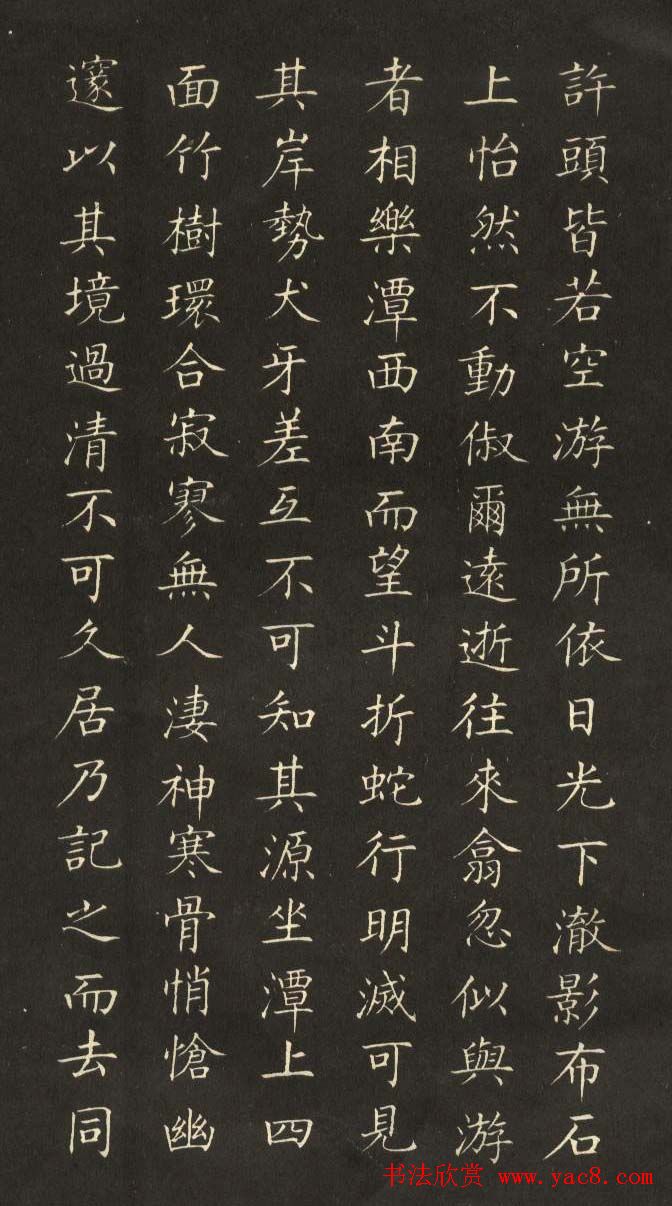 許頭皆若空游無所依日光下澈影布石
上怡然不動俶爾遠逝往來翕忽似與游
者相樂潭西南而望斗折蛇行明滅可見
其岸勢犬牙差互不可知其源坐潭上四
面竹樹環合寂寥無人淒神寒骨悄愴幽
邃以其境過清不可久居乃記之而去同
书法欣赏 www.yac8.com